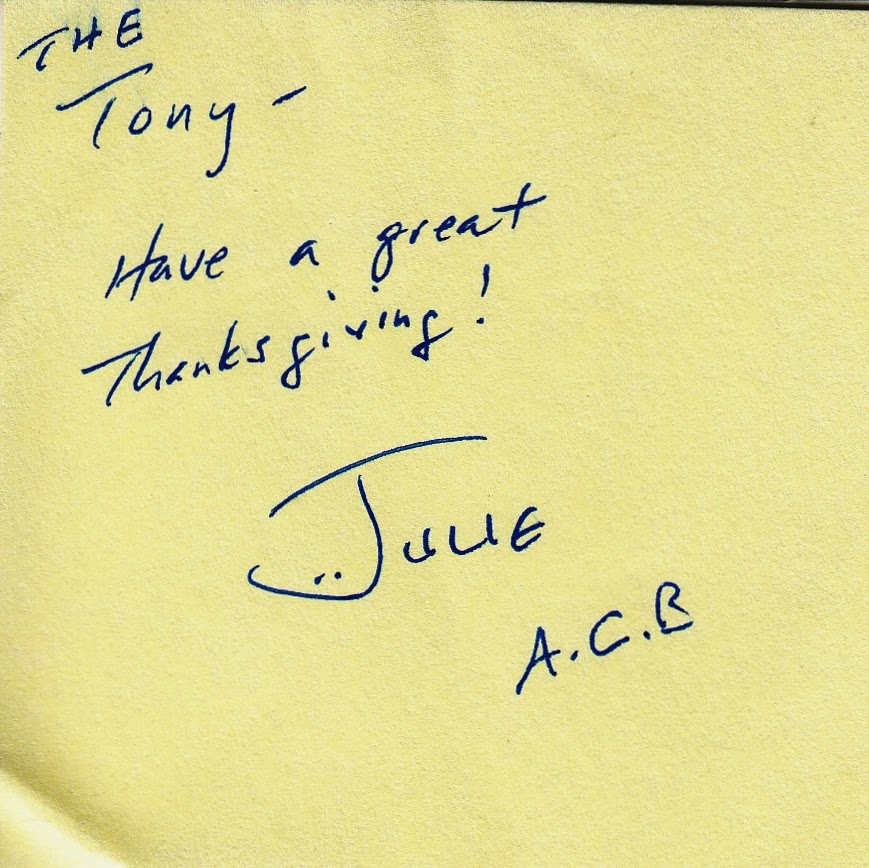 THE
Tony -
Have a great
Thanksgiving!
JULIE
A.C.B